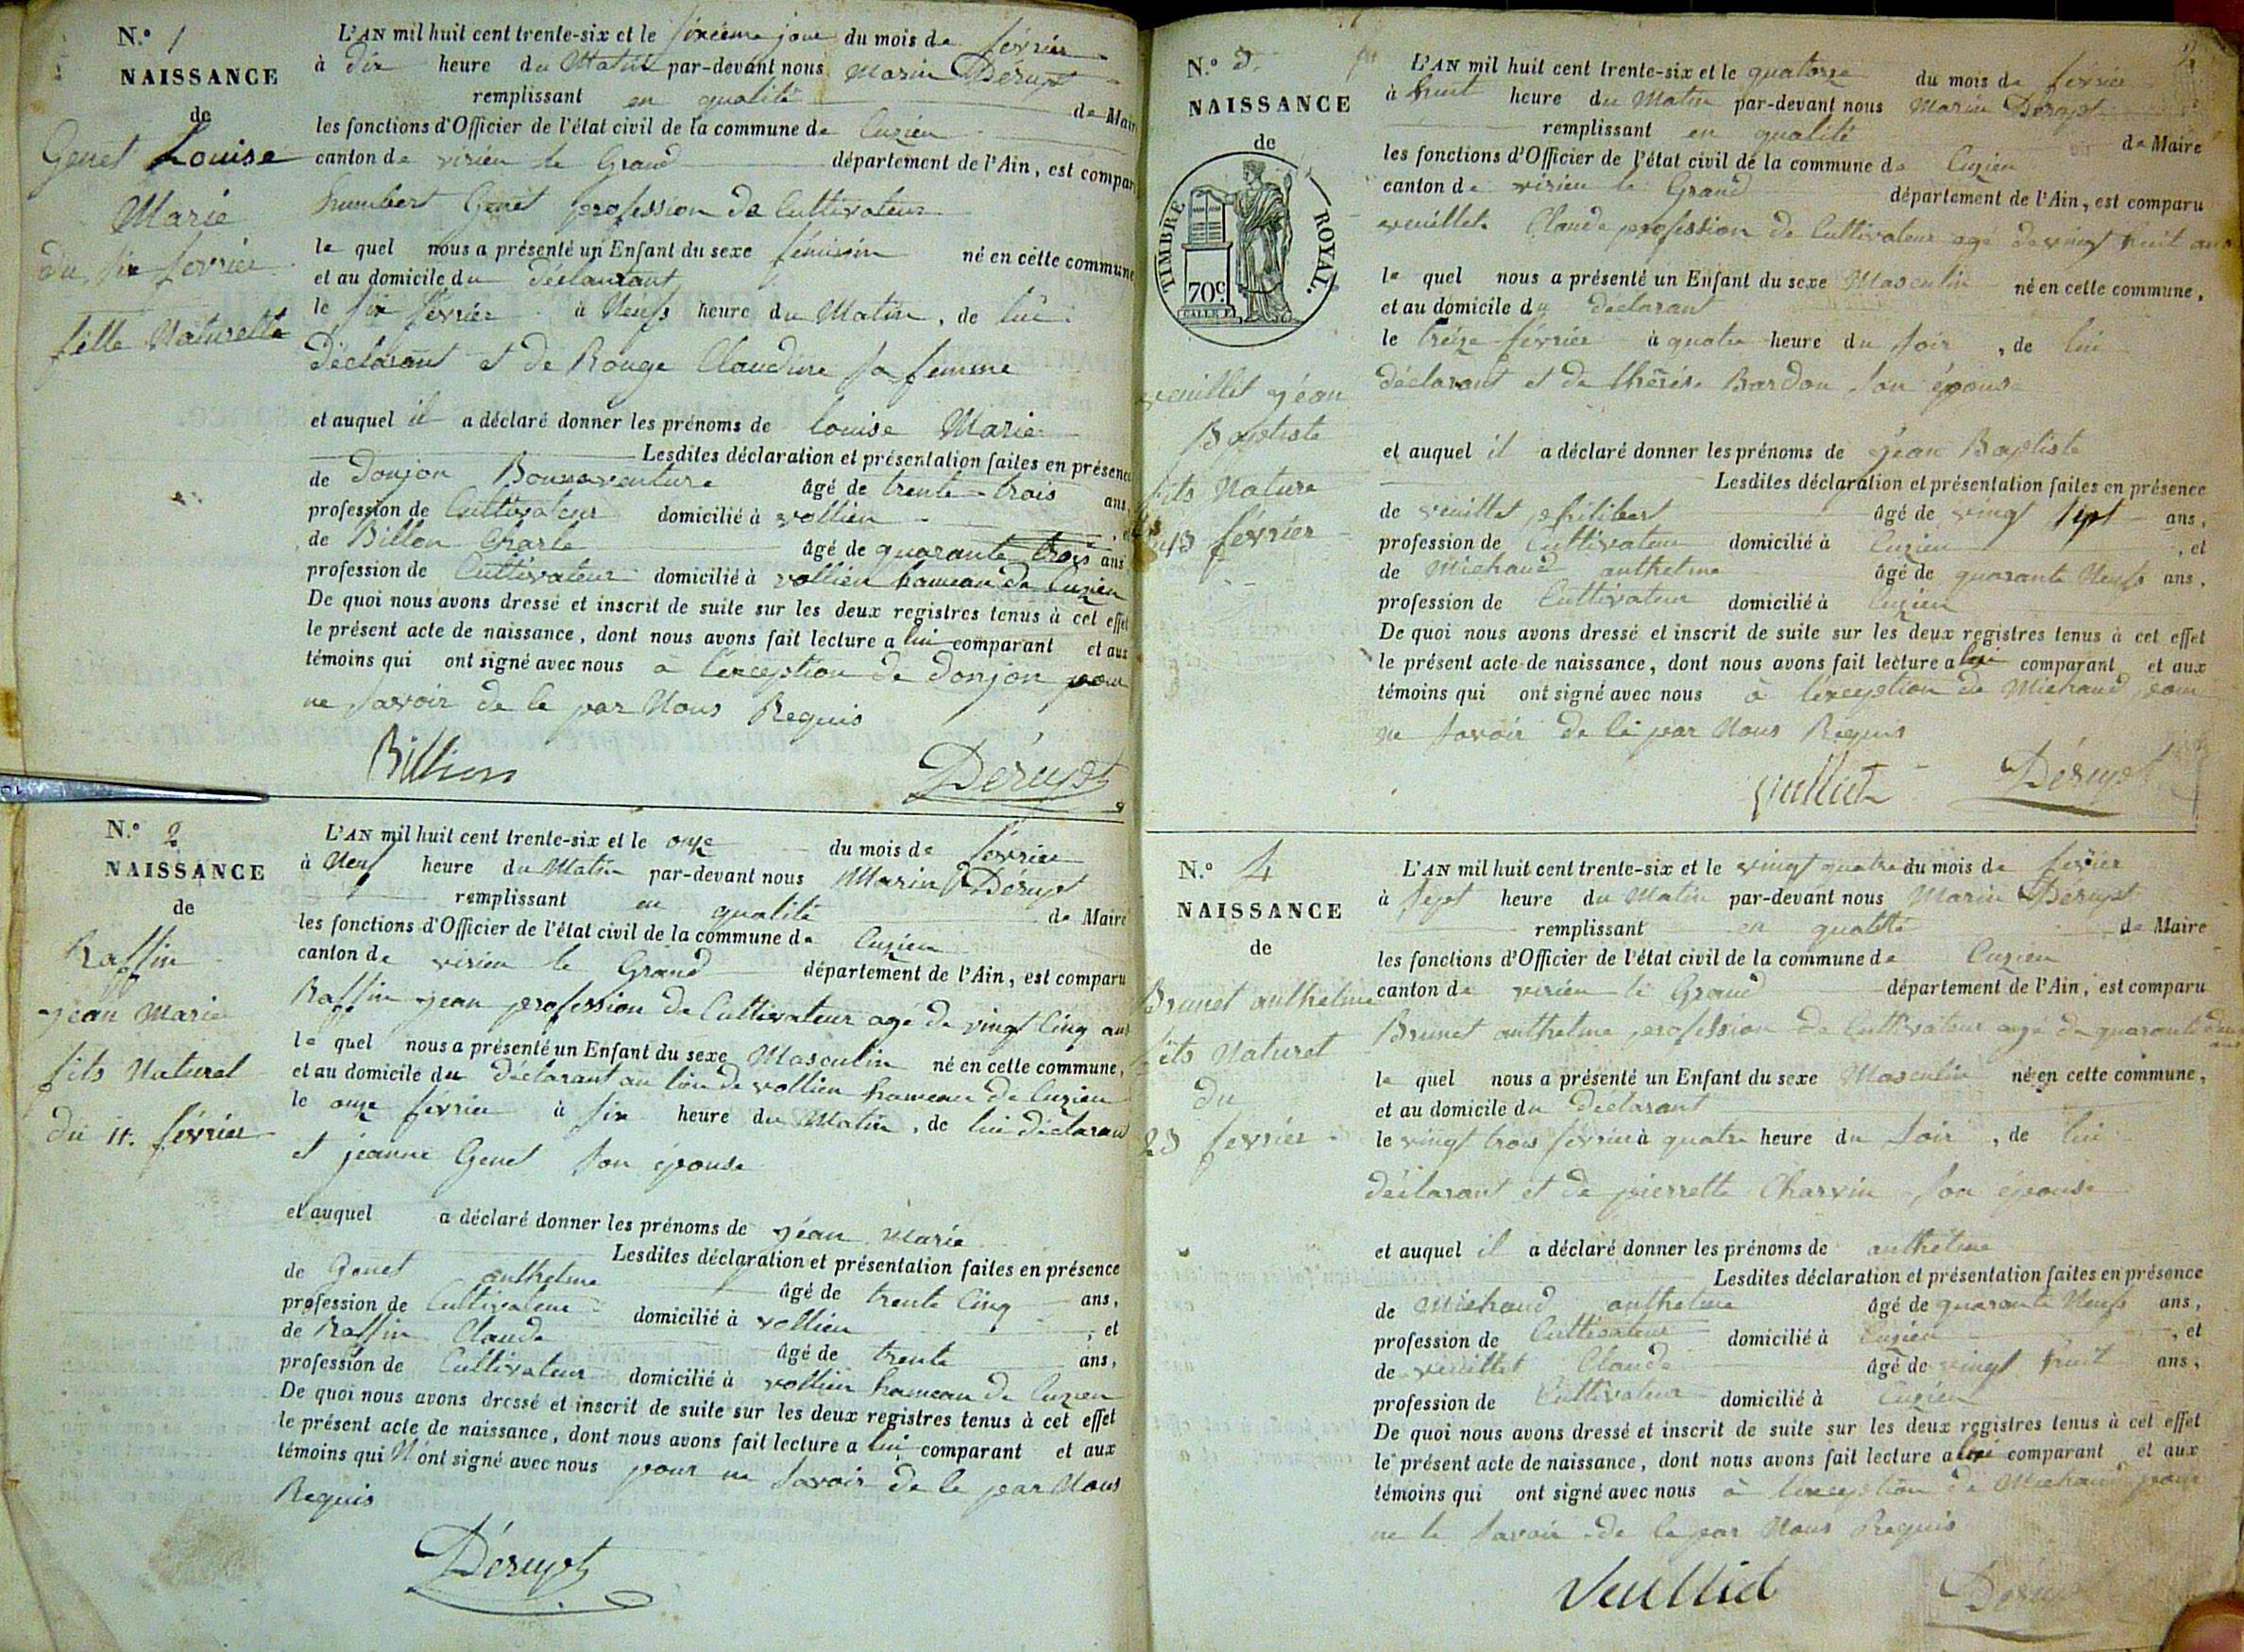 N.° 1
NAISSANCE
de
Genet Louise
Marie
du six fevrier
fille Naturelle
L'AN mil huit cent trente-six et le sixième jour du mois de février
à dix heure du Matin par-devant nous Marin Dérupt
remplissant en qualité de Mair
les fonctions d'Officier de l'état civil de la commune de Cuzieu
canton de virieu le Grand département de l'Ain, est compar
humbert Genet profession de Cultivateur
le quel nous a présenté un Enfant du sexe féminin né en cette commune
et au domicile du
le six février à Neufs heure du Matin, de lui
Déclarant et de Rouge Claudine sa femme
et auquel il a déclaré donner les prénoms de louise Marie
Lesdites déclaration et présentation faites en présence
de Donjon Bonnaventure âgé de trente-trois ans,
profession de Cultivateur domicilié à vollien
de Billon Charle âgé de quarante trois ans
profession de Cultivateur domicilié à vollien hameau de Cuzieu
De quoi nous avons dressé et inscrit de suite sur les deux registres tenus à cet effet
le présent acte de naissance, dont nous avons fait lecture a lui comparant et aux
témoins qui ont signé avec nous à l'exception de Donjon pour
ne savoir de le par Nous Requis
Billion Dérupt
N.° 2
NAISSANCE
de
Raffin
jean Marie
fils Naturel
du 11. février
L'AN mil huit cent trente-six et le onze du mois de février
à Neuf heure du Matin par-devant nous Marin Dérupt
remplissant en qualité de Maire
les fonctions d'Officier de l'état civil de la commune de Cuzieu
canton de virieu le Grand département de l'Ain, est comparu
Raffin jean profession de Cultivateur agé de vingt Cinq ans
le quel nous a présenté un Enfant du sexe Masculin né en cette commune,
et au domicile du déclarant au lieu de vollien hameau de Cuzieu
le onze février à six heure du Matin, de lui déclarant
et jeanne Genet son épouse
et auquel a déclaré donner les prénoms de jéan Marie
Lesdites déclaration et présentation faites en présence
de Genet anthelme âgé de trente Cinq ans,
profession de Cultivateur domicilié à vollien, et
de Raffin Claude âgé de trente ans,
profession de Cultivateur domicilié à vollien hameau de Cuzieu
De quoi nous avons dressé et inscrit de suite sur les deux registres tenus à cet effet
le présent acte de naissance, dont nous avons fait lecture a lui comparant et aux
témoins qui N'ont signé avec nous pour ne savoir de le par Nous
Requis
Dérupt
N.° 3.
NAISSANCE
de
TIMBRE ROYAL.
70c
veuillet jéan
Baptiste
fils Nature
du 13 février
L'AN mil huit cent trente-six et le quatorze du mois de février
à huit heure du Matin par-devant nous Marin Dérupt
remplissant en qualité de Maire
les fonctions d'Officier de l'état civil de la commune de Cuzieu
canton de virieu le Grand département de l'Ain, est comparu
veuillet Claude profession de Cultivateur agé de vingt huit ans
le quel nous a présenté un Enfant du sexe Masculin né en cette commune,
et au domicile du declarant
le tréize février à quatre heure du soir, de lui
déclarant et de thérése Bardon son épouse
et auquel il a déclaré donner les prénoms de jéan Baptiste
Lesdites déclaration et présentation faites en présence
de veuillet philibert âgé de vingt sept ans,
profession de Cultivateur domicilié à Cuzieu, et
de Michaud anthelme âgé de quarante Neufs ans,
profession de Cultivateur domicilié à Cuzieu
De quoi nous avons dressé et inscrit de suite sur les deux registres tenus à cet effet
le présent acte de naissance, dont nous avons fait lecture a lui comparant et aux
témoins qui ont signé avec nous à l'exception de Michaud pour
ne savoir de le par Nous Requis
Dérupt
N.° 4
NAISSANCE
de
Brunet anthelme
fils Naturel
du
23 fevrier
L'AN mil huit cent trente-six et le vingt quatre du mois de février
à sept heure du Matin par-devant nous Marin Dérupt
remplissant en qualité de Maire
les fonctions d'Officier de l'état civil de la commune de Cuzieu
canton de virieu le Grand département de l'Ain, est comparu
Brunet anthelme profession de Cultivateur agé de quarante deux ans
le quel nous a présenté un Enfant du sexe Masculin né en cette commune,
et au domicile du declarant
le vingt trois février à quatre heure du soir, de lui
déclarant et de pierrette Charvin son épouse
et auquel il a déclaré donner les prénoms de anthelme
Lesdites déclaration et présentation faites en présence
de Michaud anthelme âgé de quarante Neufs ans,
profession de Cultivateur domicilié à Cuzieu, et
de veuillet Claude âgé de vingt huit ans,
profession de Cultivateur domicilié à Cuzieu
De quoi nous avons dressé et inscrit de suite sur les deux registres tenus à cet effet
le présent acte de naissance, dont nous avons fait lecture a lui comparant et aux
témoins qui ont signé avec nous à l'exception de Michaud pour
ne le savoir de le par Nous Requis
Vuilliet Dérupt